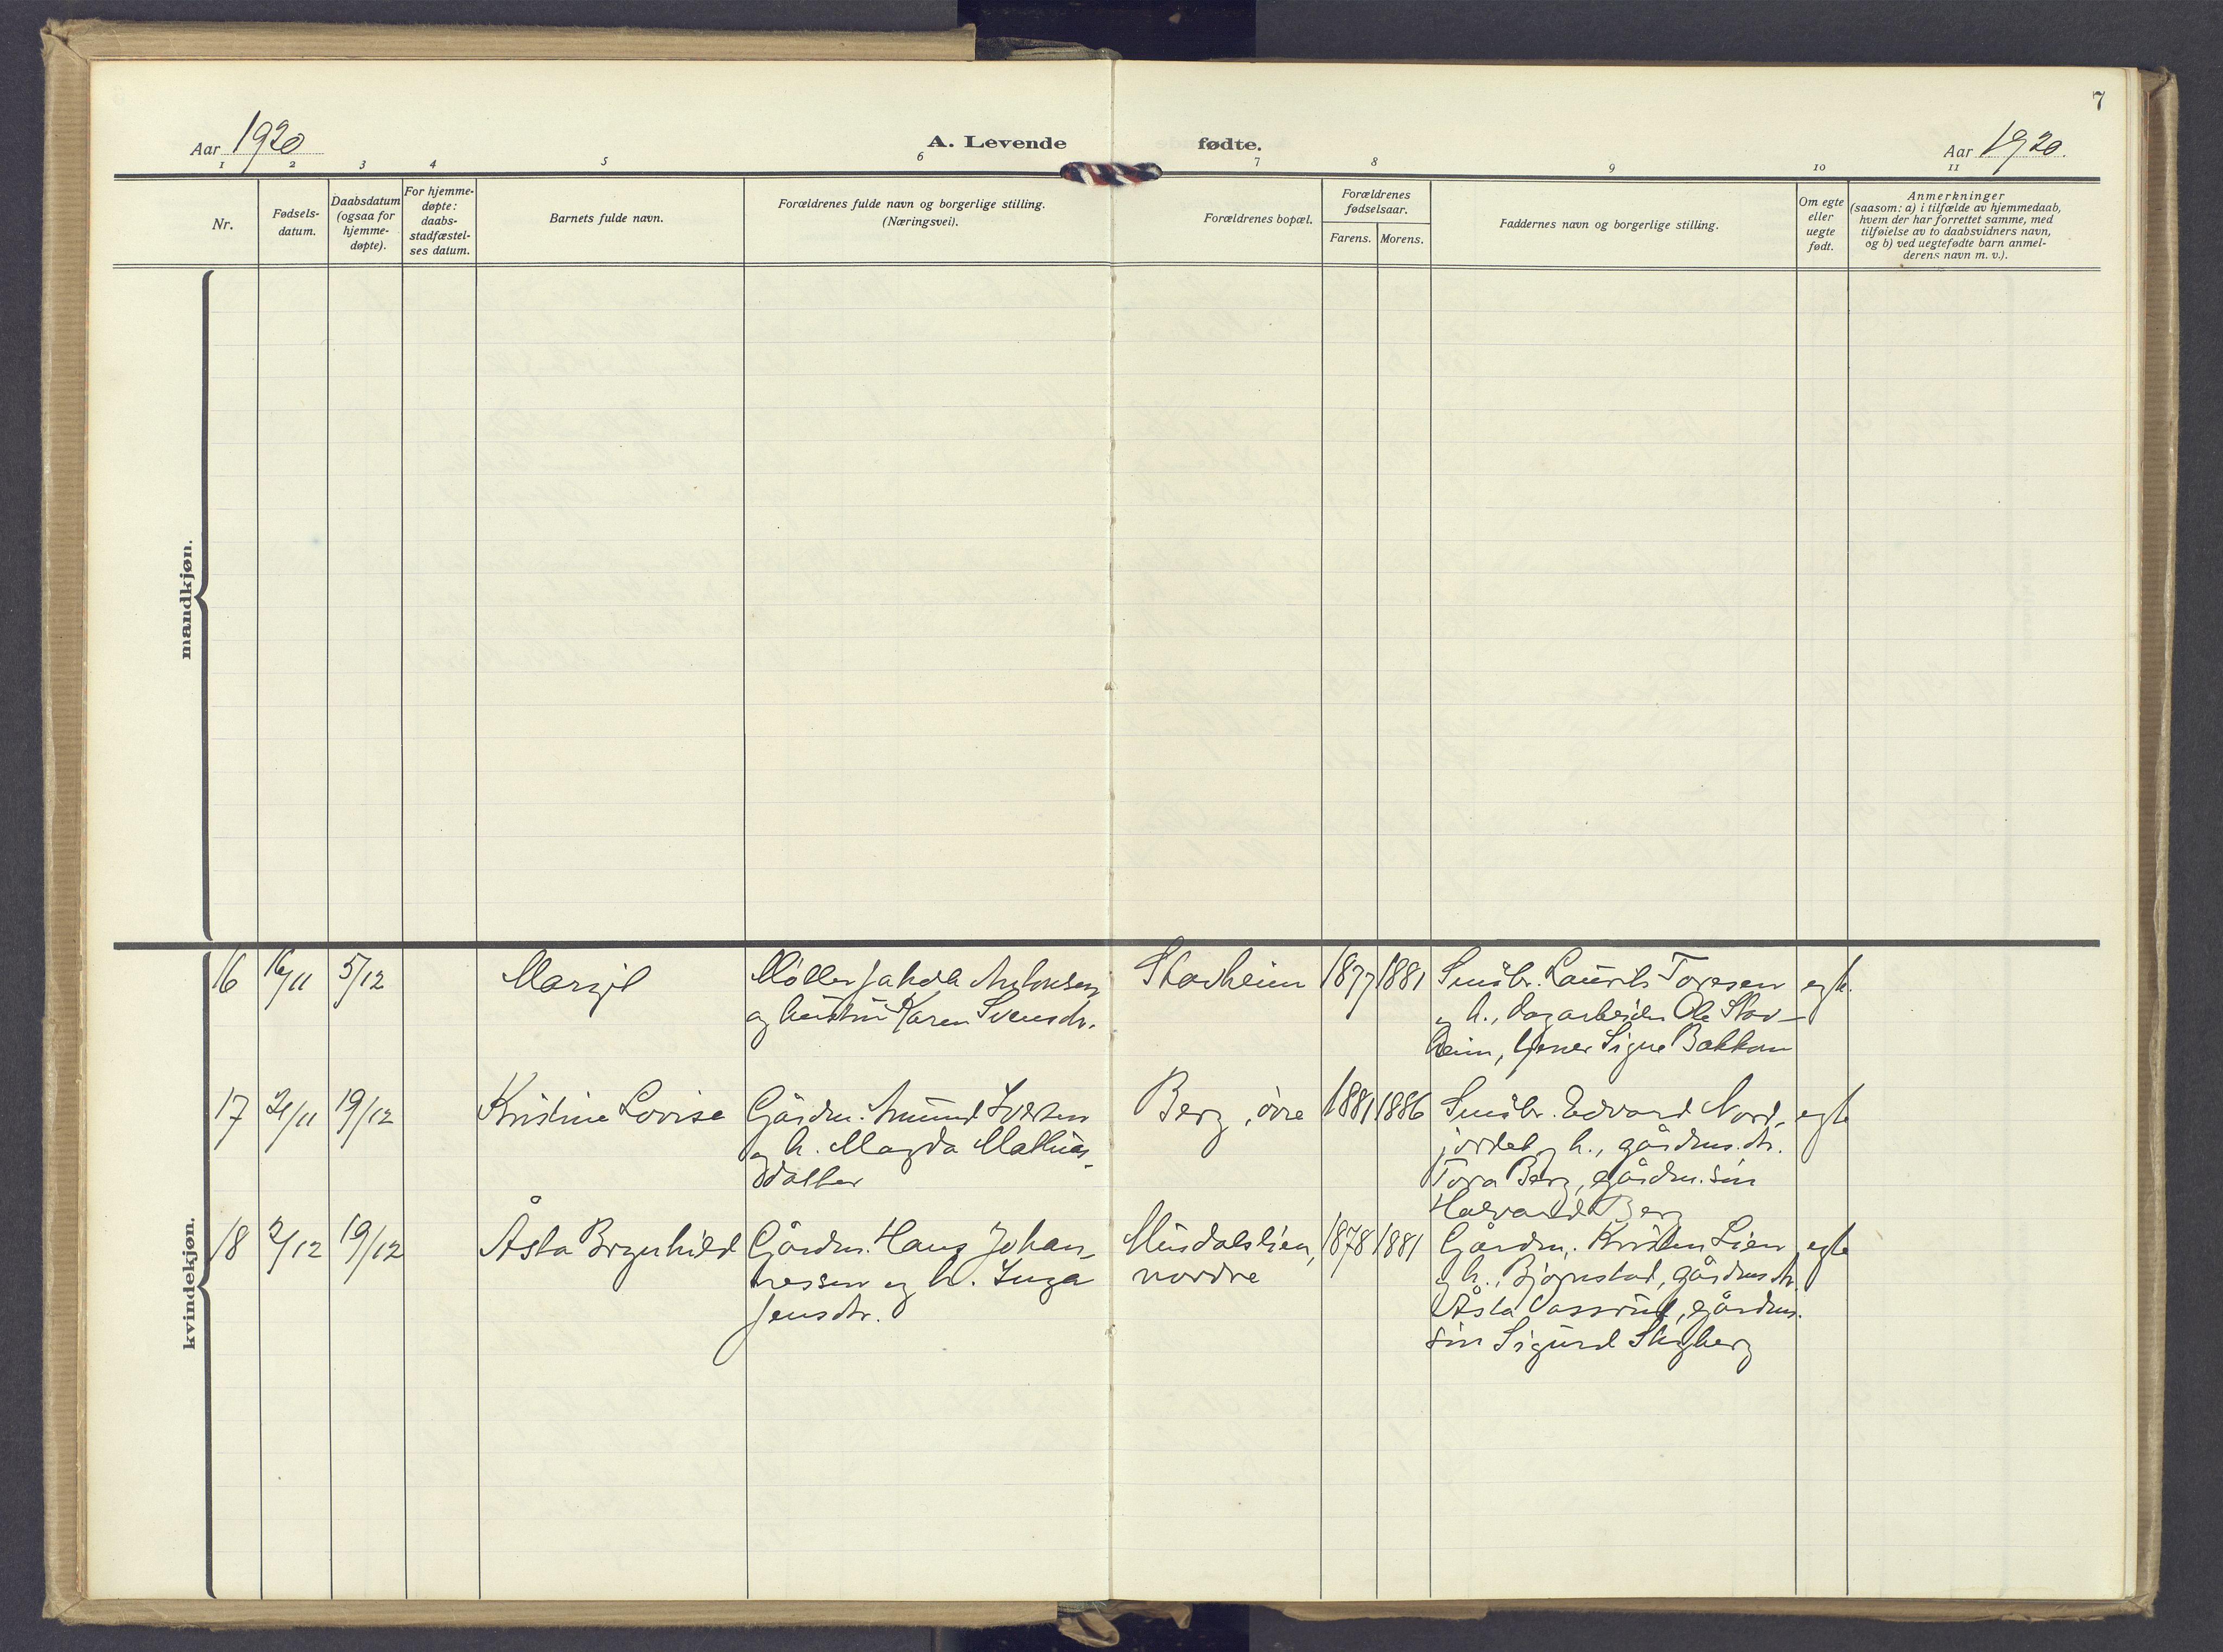 7
Aar 1920
A. Levende
fødte.
Aar 1920.
1 2 3 4 5 6 7 8 9 10 11
Nr.
Fødsels-
datum.
Daabsdatum
(ogsaa for
hjemme-
døpte).
For hjemme-
døpte:
daabs-
stadfæstel-
ses datum.
Barnets fulde navn.
Forældrenes fulde navn og borgerlige stilling.
(Næringsvei).
Forældrenes bopæl.
Forældrenes
fødselsaar.
Farens. Morens.
Faddernes navn og borgerlige stilling.
Om egte
eller
uegte
født.
Anmerkninger
(saasom: a) i tilfælde av hjemmedaab,
hvem der har forrettet samme, med
tilføielse av to daabsvidners navn,
og b) ved uegtefødte barn anmel-
derens navn m. v.).
mandkjøn.
kvindekjøn.
16 16/11 5/12 Margit
Møller Jakob Antonsen
og hustru Karen Svensdr.
Stavheim 1877 1881
Småbr. Laurits Toresen
og h., dagarbeider Ole Stav-
heim, Signe Bakken
egte.
17 21/11 19/12 Kristine Lovise
Gårdm. Amund Iversen
og h. Magda Mathias-
datter
Berg, øvre 1881 1886
Småbr. Edvard Nord-
jordet og h., gårdm. dr.
Tora Berg, gårdm. søn
Halvard Berg
egte
18 2/12 19/12 Åsta Brynhild
Gårdm. Hans Johan-
nessen og h. Inga
Jensdr.
Musdalslien,
nordre
1878 1881
Gårdm. Kristen Lien
og h., Bjørnstad, gårdm. dr.
Åsta Vassrud, gårdm.
søn Sigurd Skyberg
egte